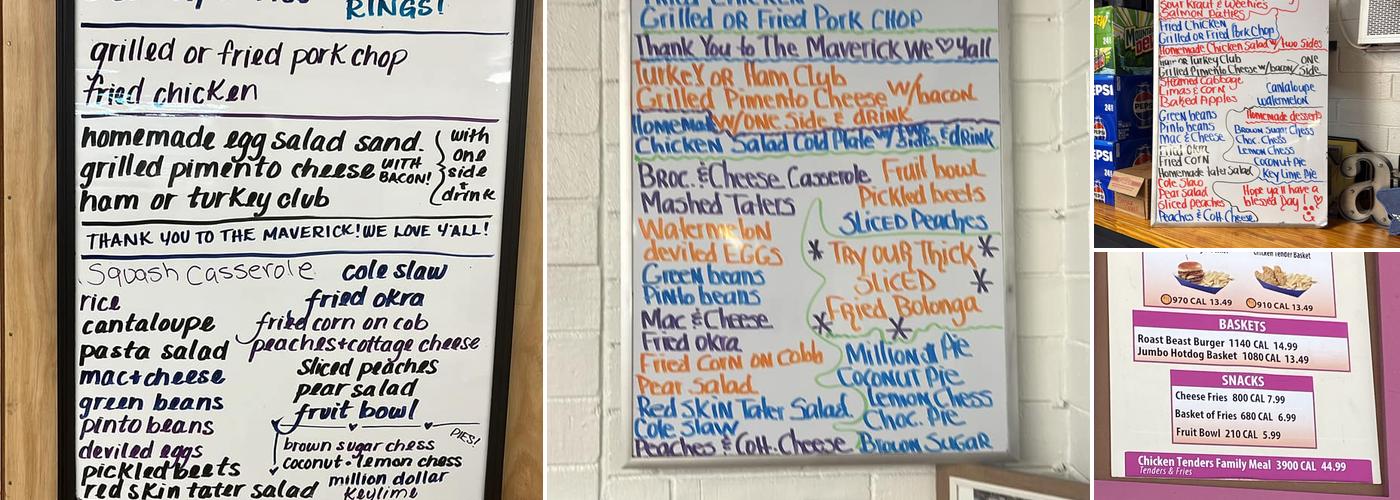 RINGS!
grilled or fried pork chop
fried chicken
homemade egg salad sand.
grilled pimento cheese WITH BACON!
ham or turkey club
with
one
side
+
drink
THANK YOU TO THE MAVERICK! WE LOVE Y'ALL!
Squash Casserole
cole slaw
rice
fried okra
cantaloupe
fried corn on cob
pasta salad
peaches+cottage cheese
mac+cheese
Sliced peaches
green beans
pear salad
pinto beans
fruit bowl
deviled eggs
PIES!
pickled beets
brown sugar chess
red skin tater salad
coconut • lemon chess
million dollar
Keylime
Grilled OR Fried Pork CHOP
Thank You to The Maverick We ♡ Yall
Turkey OR Ham Club
Grilled Pimento Cheese w/bacon
w/one Side & DRINK
Homemade
Chicken Salad Cold Plate w/ 3 sides & drink
Broc. & Cheese Casserole
Fruit bowl
Mashed Taters
Pickled beets
Watermelon
SLICED Peaches
deviled EGGS
* Try our Thick *
Green beans
SLICED *
Pinto beans
Fried Bolonga
Mac & Cheese
* *
Fried okra
Fried Corn on Cobb
Million $ Pie
Pear Salad
Coconut Pie
Red Skin Tater Salad
Lemon Chess
Cole Slaw
Choc. Pie
Peaches & Cott. Cheese
Brown Sugar
Sour Kraut & Weenies
Salmon Patties
Fried Chicken
Grilled or Fried Pork Chop
Homemade Chicken Salad w/ two sides
Ham or Turkey Club
one
Grilled Pimento Cheese w/bacon/ Side
Steamed Cabbage
Limas & Corn
Cantaloupe
Baked Apples
watermelon
Green beans
Homemade desserts
Pinto beans
Brown Sugar Chess
Mac & Cheese
Choc. Chess
Fried okra
Lemon Chess
Fried Corn
Coconut Pie
Homemade tater Salad
Key Lime Pie
Cole Slaw
Pear Salad
Hope ya'll have a
Sliced peaches
blessed Day!
Peaches & Cott. Cheese
PEPSI
PEPSI
a
Chicken Tender Basket
970 CAL 13.49
910 CAL 13.49
BASKETS
Roast Beast Burger 1140 CAL 14.99
Jumbo Hotdog Basket 1080 CAL 13.49
SNACKS
Cheese Fries 800 CAL 7.99
Basket of Fries 680 CAL 6.99
Fruit Bowl 210 CAL 5.99
Chicken Tenders Family Meal 3900 CAL 44.99
Tenders & Fries